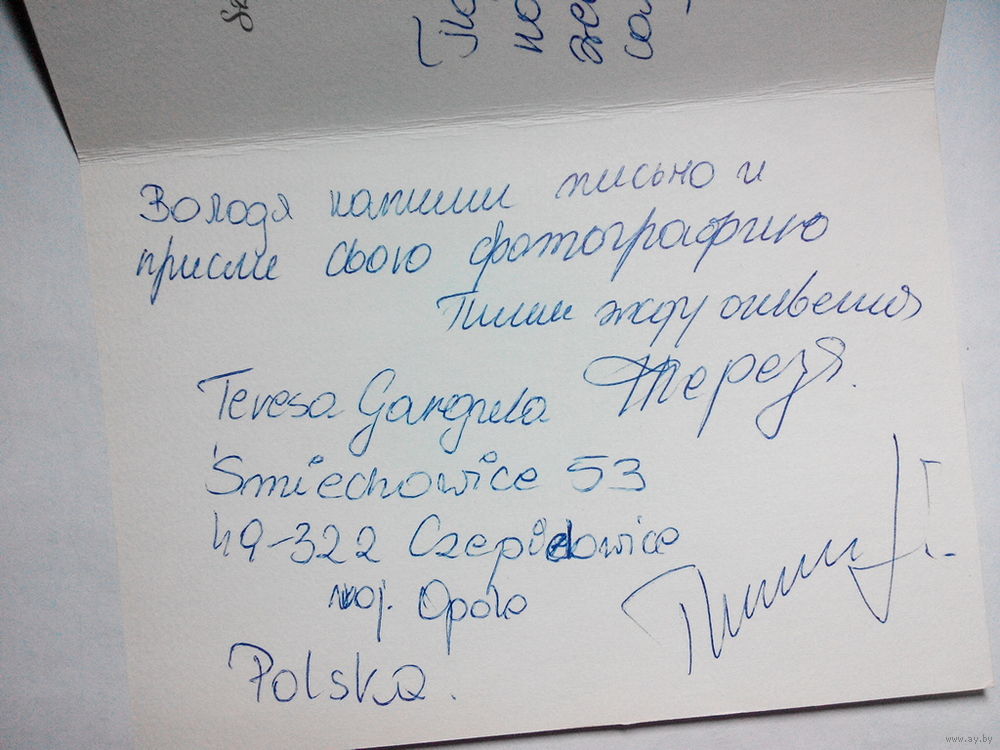 Володя напиши письмо и
пришли свою фотографию
Пиши жду ответа
Терезя.
Teresa Gargula
Śmiechowice 53
49-322 Czepielowice
woj. Opole
Polska.
Пиши
www.ay.by